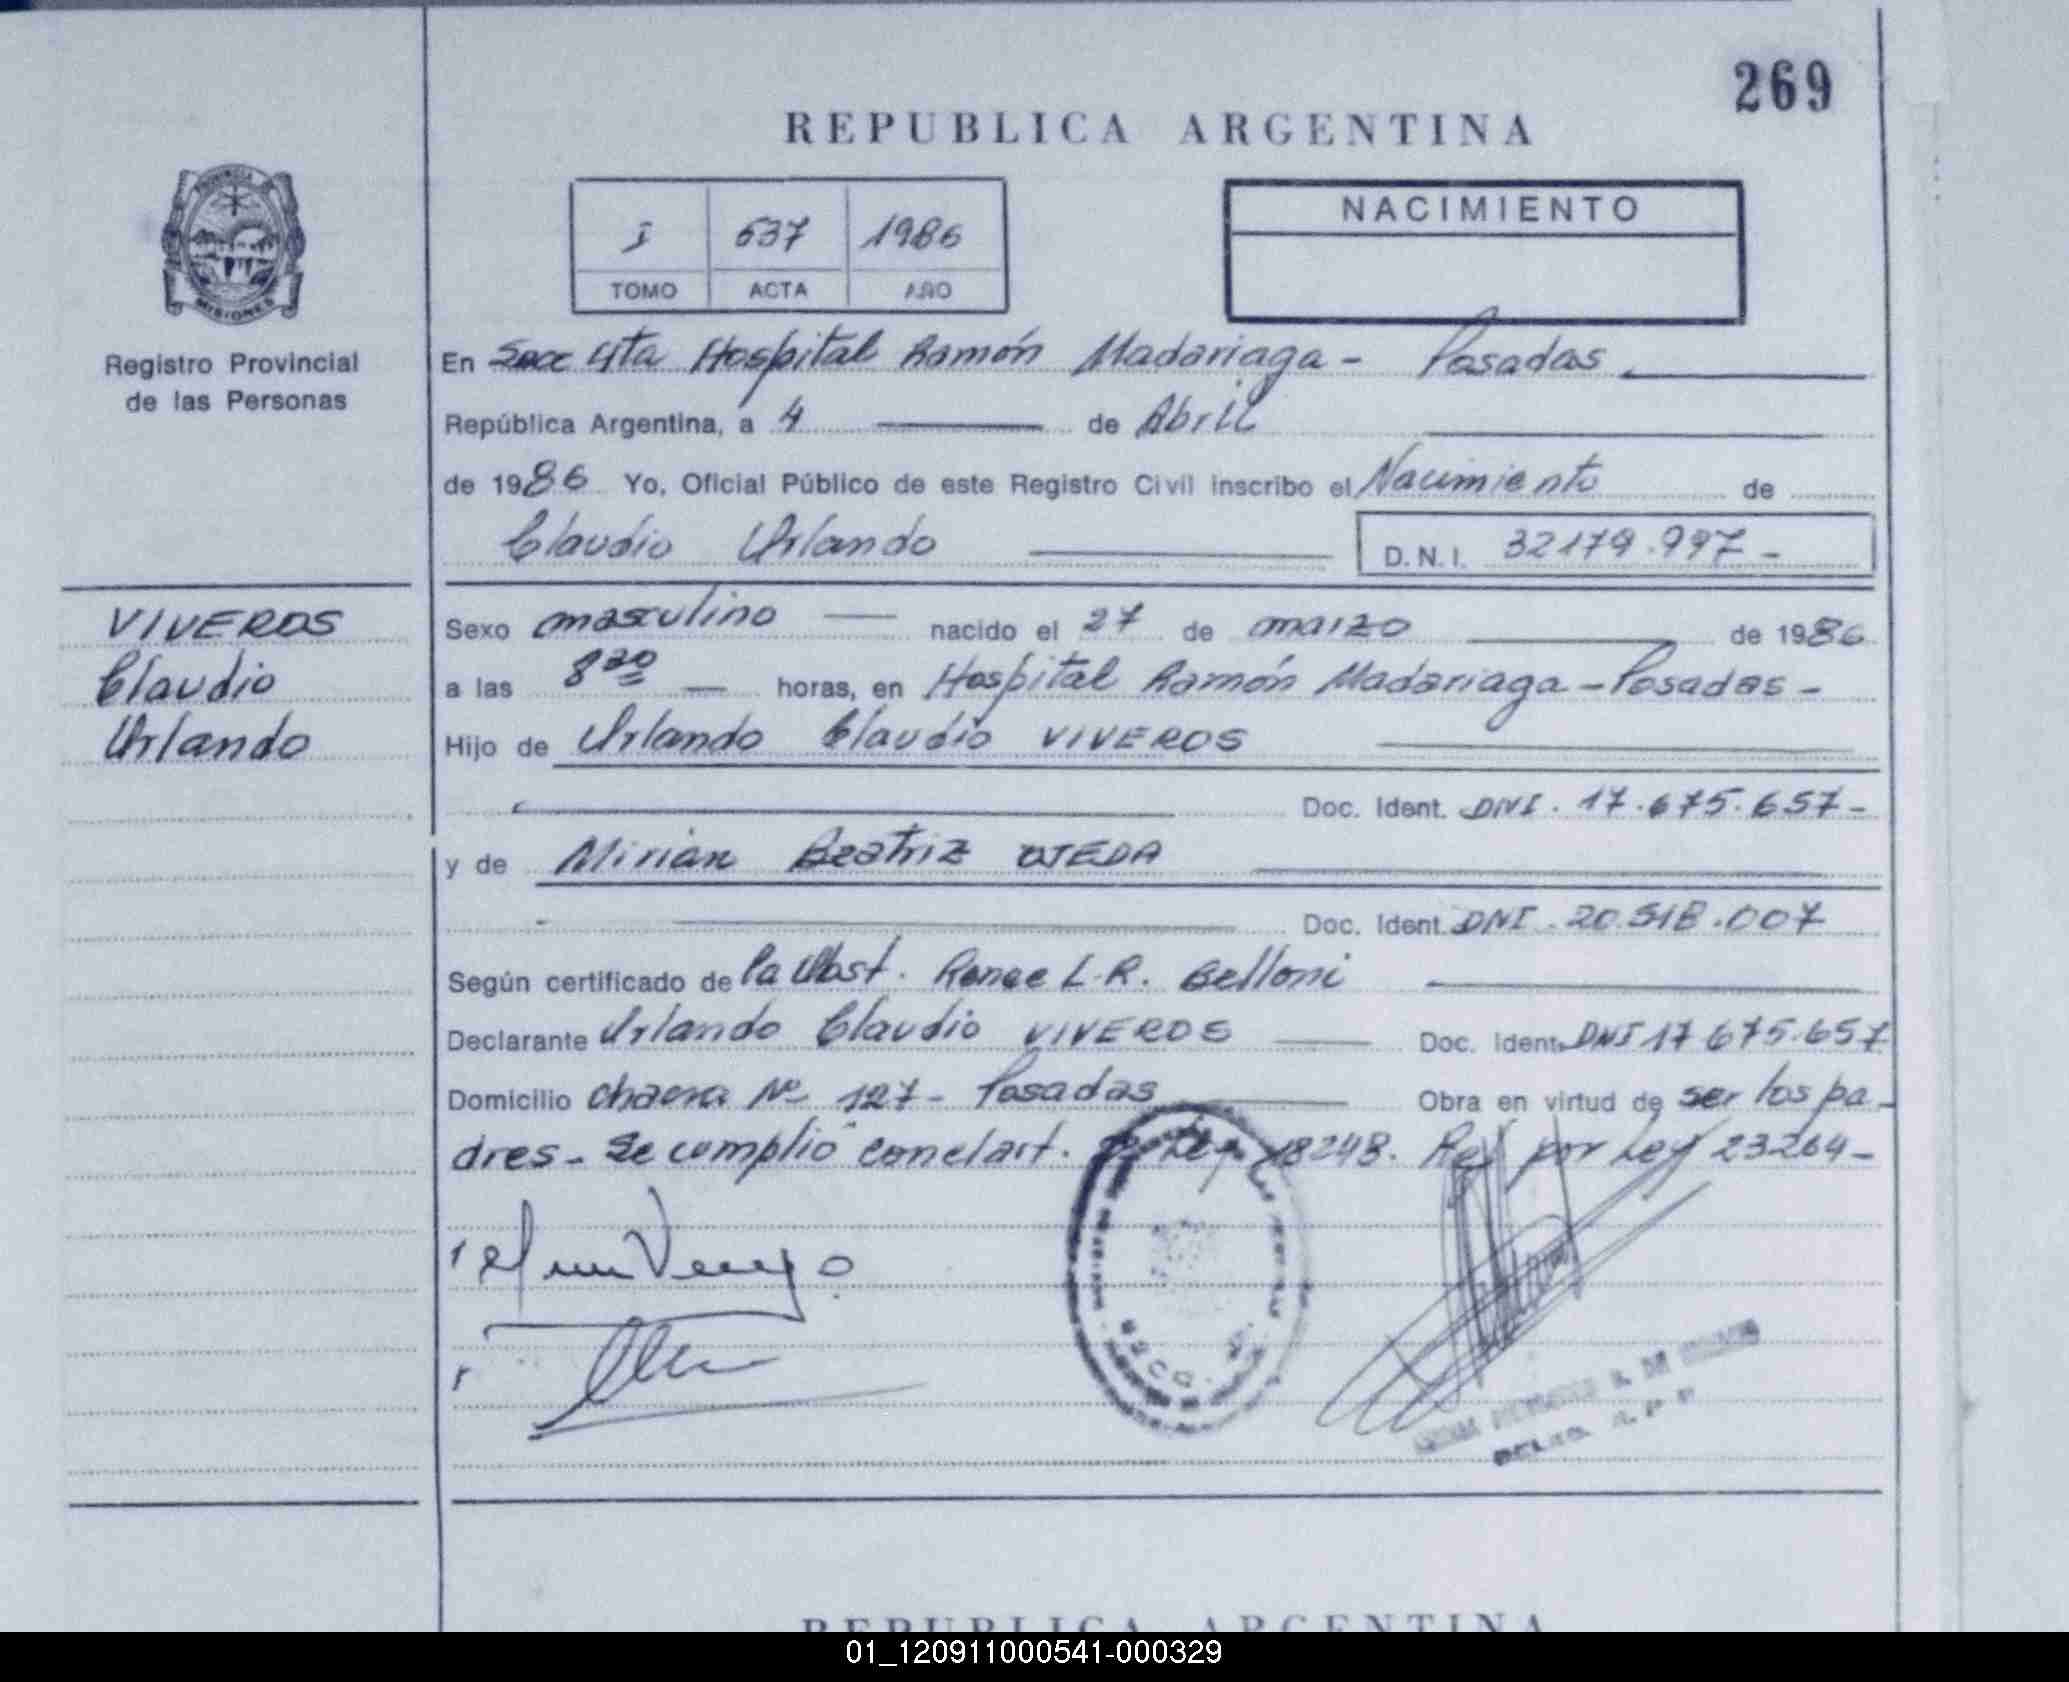 269
REPUBLICA ARGENTINA
I 637 1986
TOMO ACTA AÑO
NACIMIENTO
PROVINCIA DE MISIONES
Registro Provincial
de las Personas
En Secc 4ta Hospital Ramón Madariaga - Posadas
República Argentina, a 4 de Abril
de 1986 Yo, Oficial Público de este Registro Civil inscribo el Nacimiento de
Claudio Orlando D.N.I. 32179.997 -
VIVEROS
Claudio
Orlando
Sexo masculino nacido el 27 de marzo de 1986
a las 8 30 horas, en Hospital Ramón Madariaga - Posadas -
Hijo de Orlando Claudio VIVEROS
Doc. Ident. DNI. 17.675.657-
y de Mirian Beatriz OJEDA
Doc. Ident. DNI. 20.518.007
Según certificado de la Obst. Renee L.R. Belloni
Declarante Orlando Claudio VIVEROS Doc. Ident. DNI 17 675.657
Domicilio chacra Nº 127 - Posadas Obra en virtud de ser los pa-
dres - Se cumplió con el art. Ley 18248. por Ley 23264-
REPUBLICA ARGENTINA
01_120911000541-000329